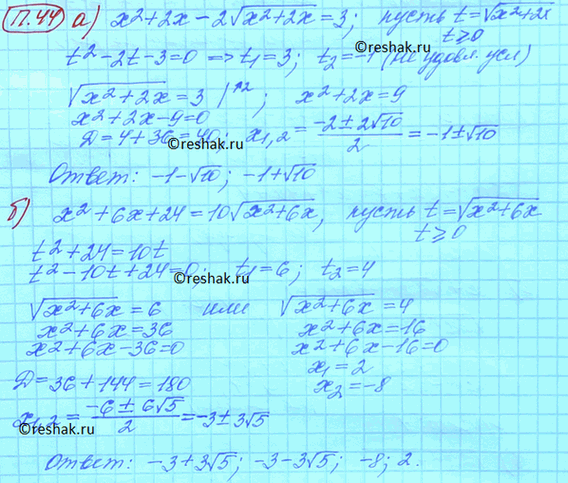 П.44 а) x²+2x−2√(x²+2x)=3; пусть t=√(x²+2x)
t≥0
t²−2t−3=0 => t₁=3; t₂=−1 (не удовл. усл)
√(x²+2x)=3 |↑2; x²+2x=9
x²+2x−9=0
Д=4+36=40; x₁,₂=(−2±2√10)/2=−1±√10
©reshak.ru
Ответ: −1−√10; −1+√10
б) x²+6x+24=10√(x²+6x), пусть t=√(x²+6x)
t≥0
t²+24=10t
t²−10t+24=0; t₁=6; t₂=4
©reshak.ru
√(x²+6x)=6 или √(x²+6x)=4
x²+6x=36 x²+6x=16
x²+6x−36=0 x²+6x−16=0
x₁=2
Д=36+144=180 x₂=−8
x₁,₂=(−6±6√5)/2=−3±3√5
©reshak.ru
Ответ: −3+3√5; −3−3√5; −8; 2.